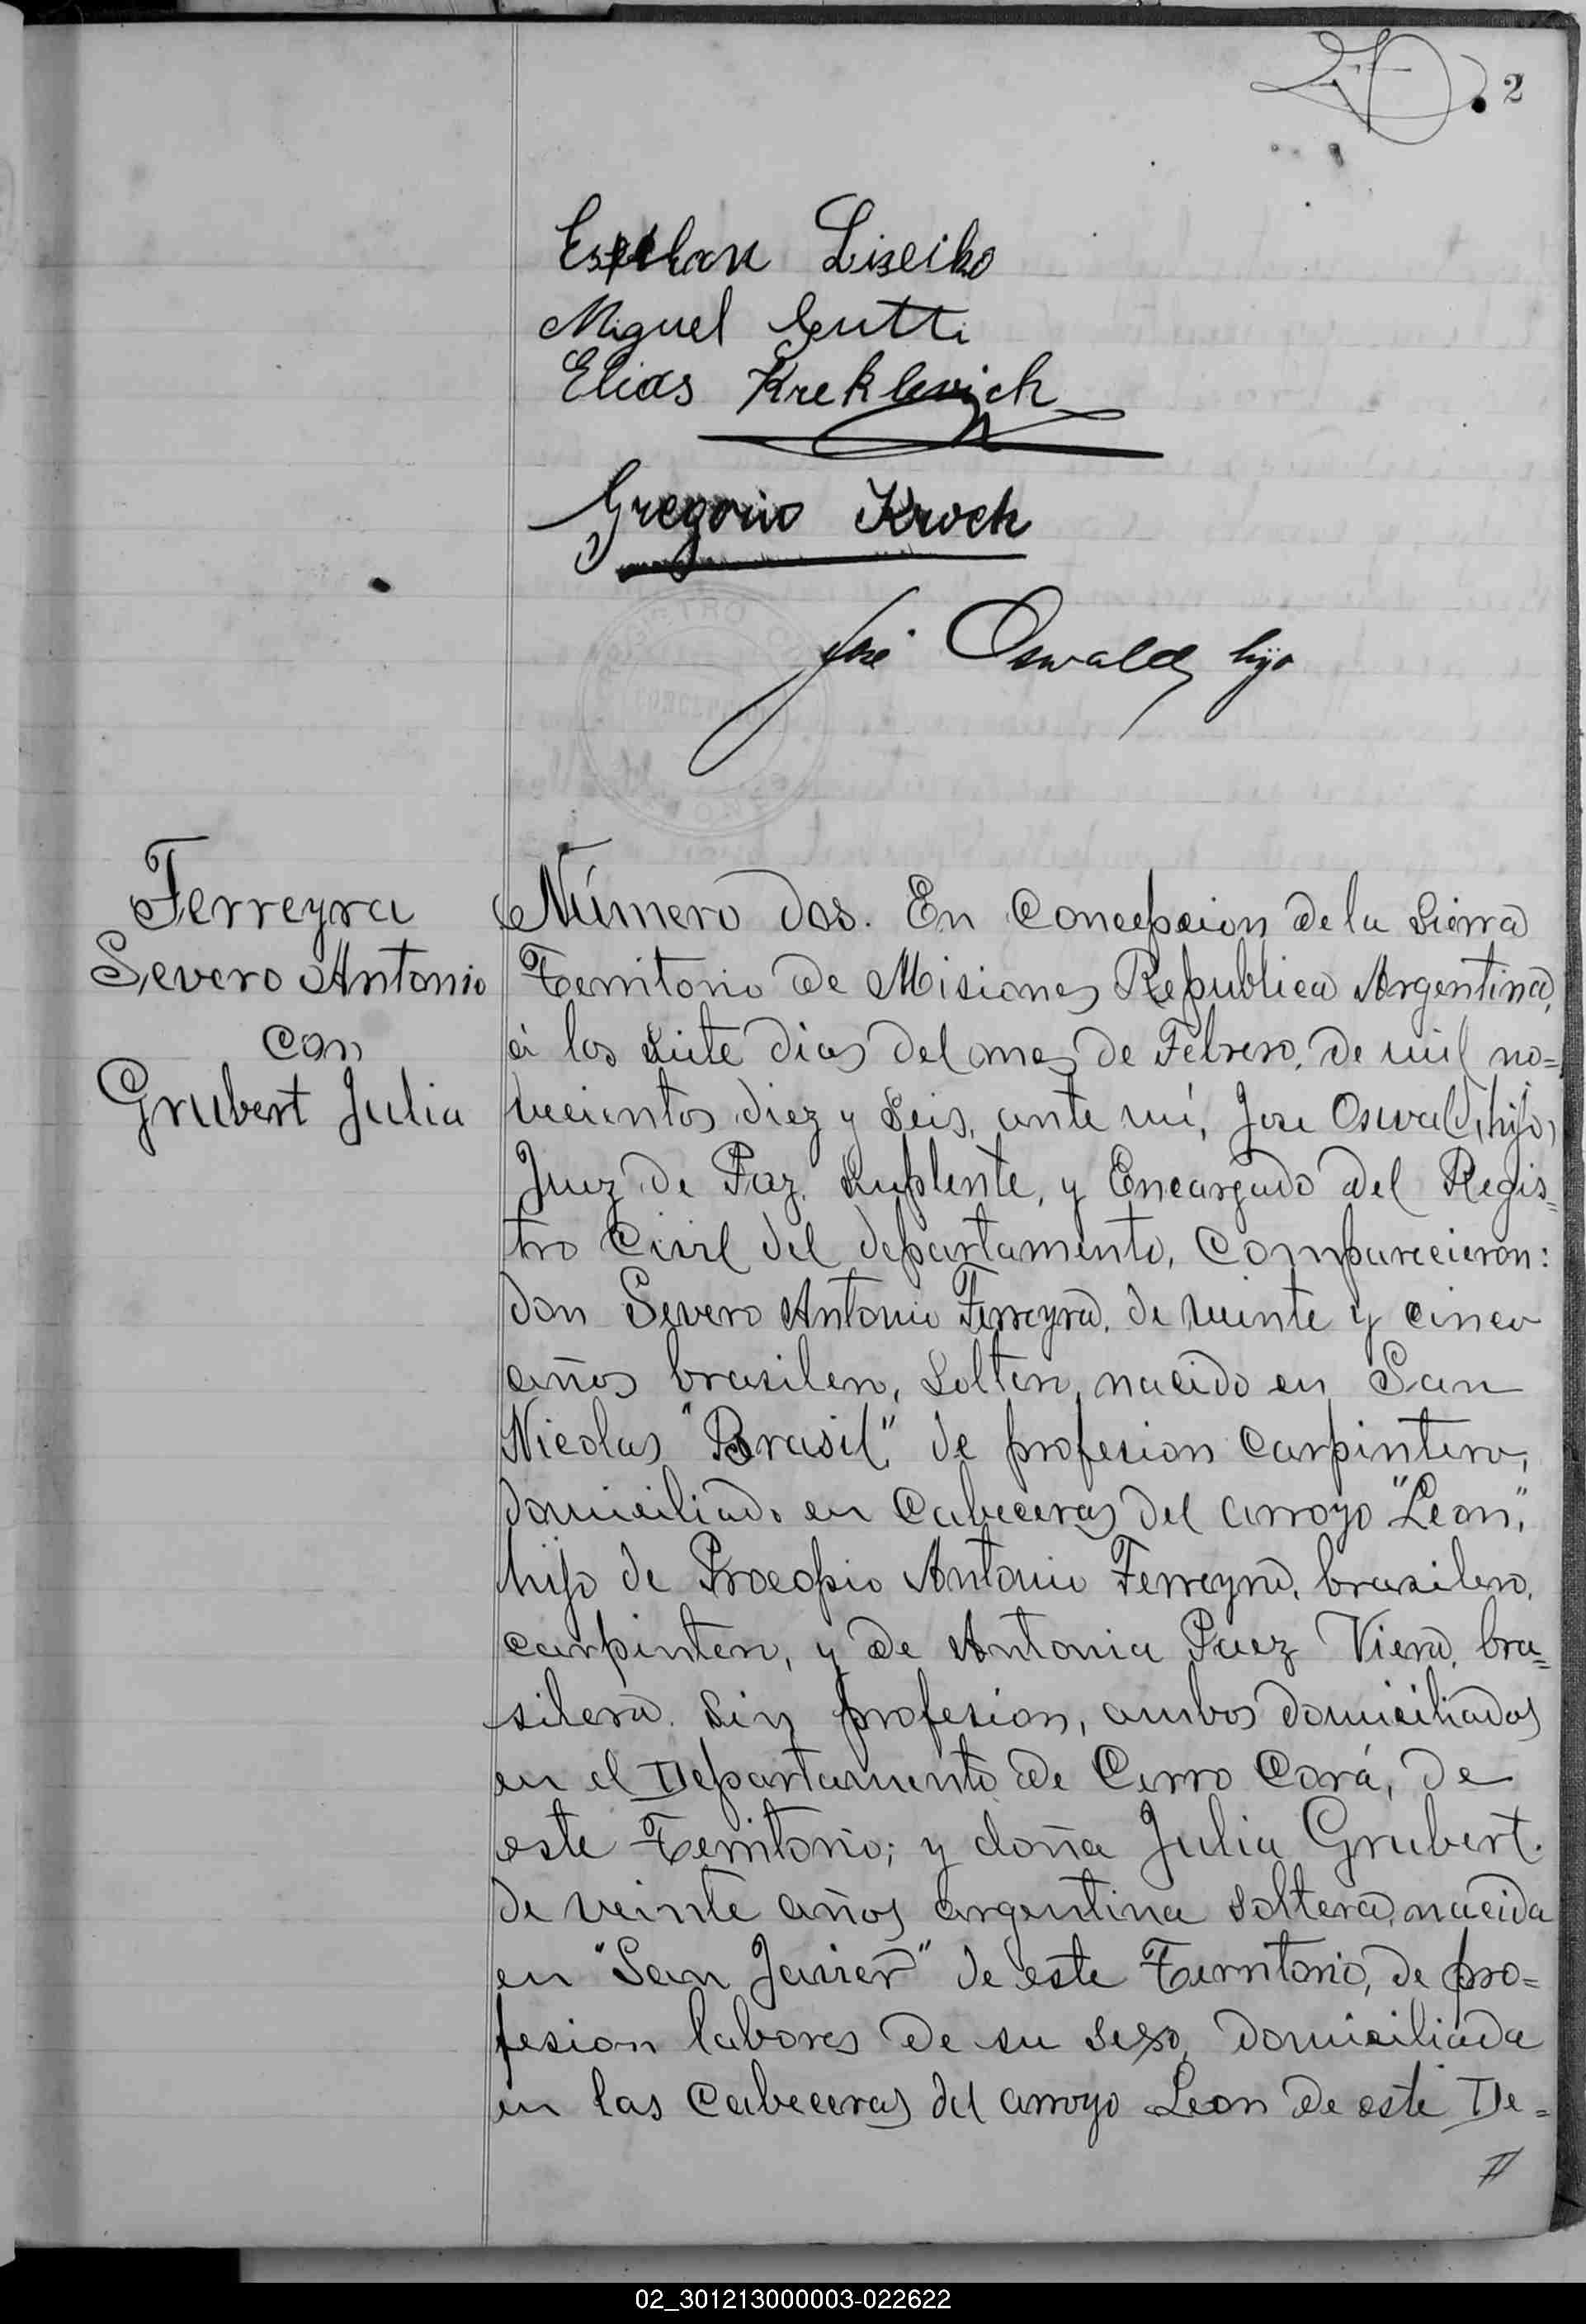 2
Esteban Liseiko
Miguel Gutti
Elias Kreklevich
Gregorio Kroch
José Oswald hijo
Ferreyra
Severo Antonio
con
Grubert Julia
Número dos. En Concepcion de la Sierra
Territorio de Misiones Republica Argentina,
à los siete dias del mes de Febrero, de mil no=
vecientos diez y seis, ante mí, Jose Oswald, hijo,
Juez de Paz, suplente, y Encargado del Regis=
tro Civil del departamento, comparecieron:
don Severo Antonio Ferreyra, de veinte y cinco
años brasilero, soltero, nacido en San
Nicolas "Brasil", de profesion carpintero,
domiciliado en Cabeceras del arroyo "Leon",
hijo de Procopio Antonio Ferreyra, brasilero,
carpintero, y de Antonia Paez Viera, bra=
silera. sin profesion, ambos domiciliados
en el Departamento de Cerro Corá, de
este Territorio; y doña Julia Grubert.
de veinte años argentina soltera, nacida
en "San Javier" de este Territorio, de pro=
fesion labores de su sexo, domiciliada
en las Cabeceras del arroyo Leon de este De=
02_301213000003-022622